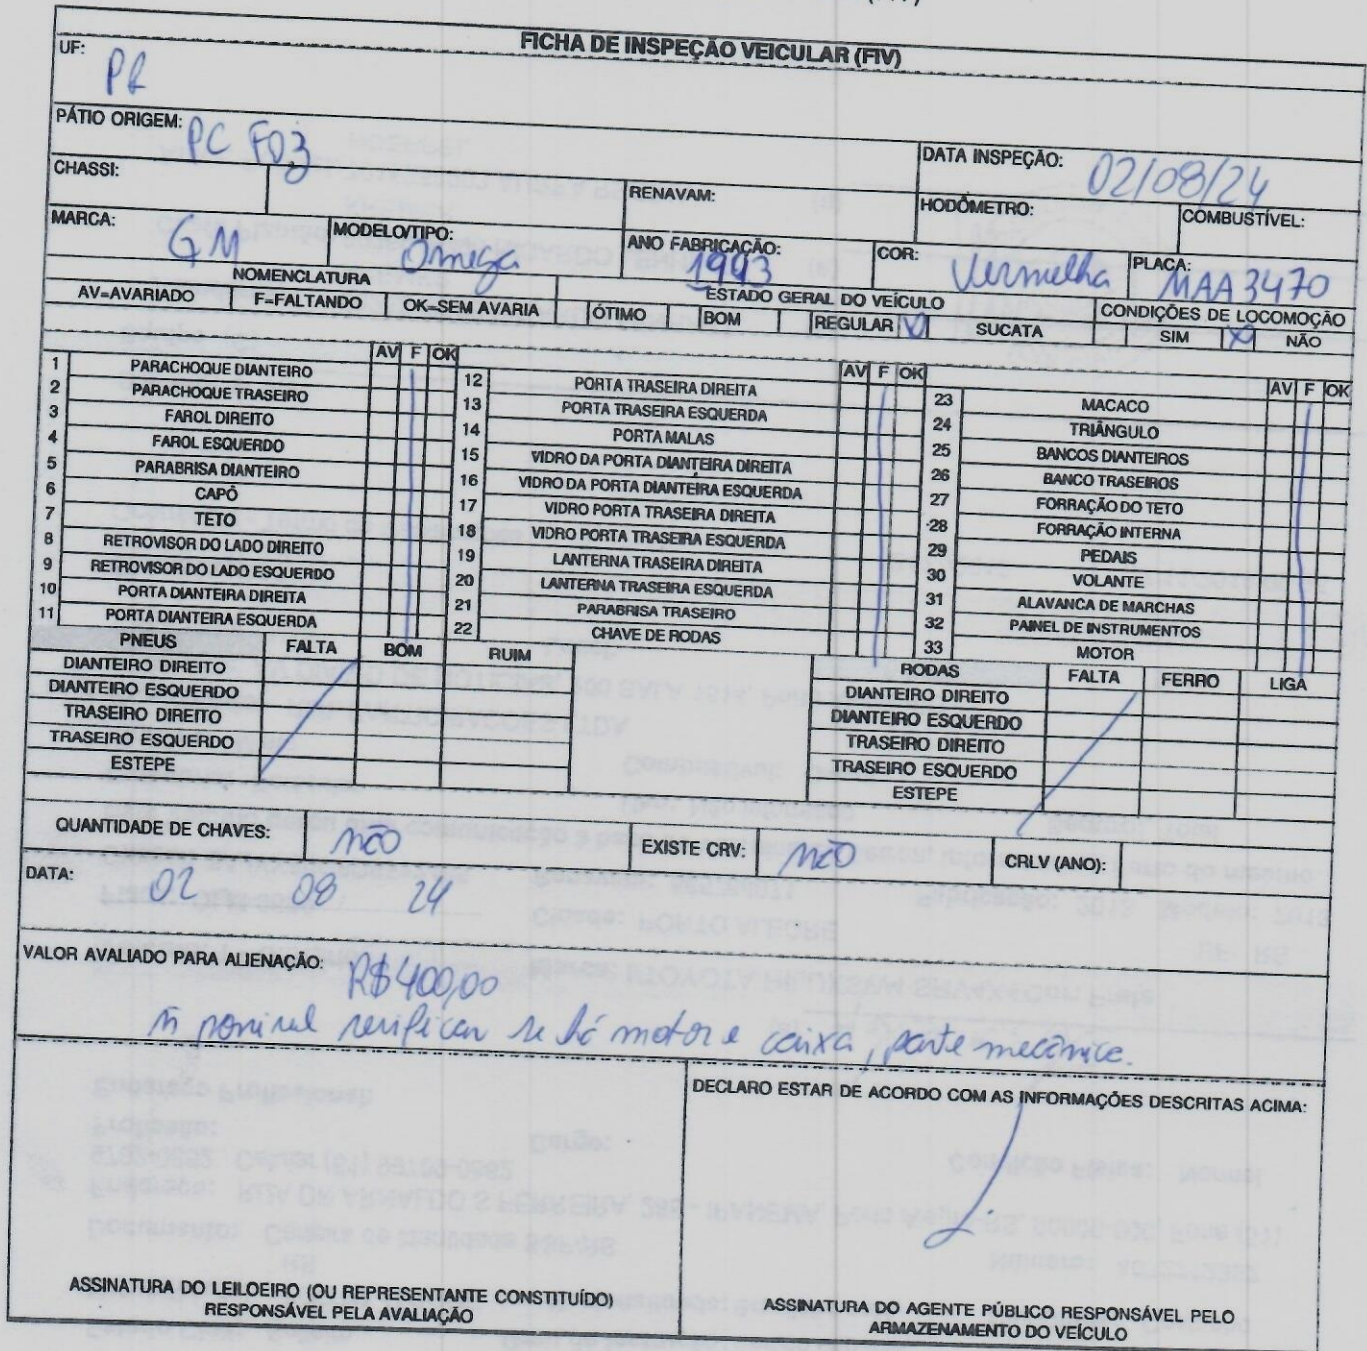 FICHA DE INSPEÇÃO VEICULAR (FIV)
UF: PR
PÁTIO ORIGEM: PC FOZ
DATA INSPEÇÃO: 02/08/24
CHASSI:
RENAVAM:
HODÔMETRO:
COMBUSTÍVEL:
MARCA: GM
MODELO/TIPO: Omega
ANO FABRICAÇÃO: 1993
COR: Vermelha
PLACA: MAA3470
NOMENCLATURA
ESTADO GERAL DO VEÍCULO
CONDIÇÕES DE LOCOMOÇÃO
AV=AVARIADO F=FALTANDO OK=SEM AVARIA ÓTIMO BOM REGULAR X SUCATA SIM X NÃO
AV F OK
1 PARACHOQUE DIANTEIRO
2 PARACHOQUE TRASEIRO
3 FAROL DIREITO
4 FAROL ESQUERDO
5 PARABRISA DIANTEIRO
6 CAPÔ
7 TETO
8 RETROVISOR DO LADO DIREITO
9 RETROVISOR DO LADO ESQUERDO
10 PORTA DIANTEIRA DIREITA
11 PORTA DIANTEIRA ESQUERDA
AV F OK
12 PORTA TRASEIRA DIREITA
13 PORTA TRASEIRA ESQUERDA
14 PORTA MALAS
15 VIDRO DA PORTA DIANTEIRA DIREITA
16 VIDRO DA PORTA DIANTEIRA ESQUERDA
17 VIDRO PORTA TRASEIRA DIREITA
18 VIDRO PORTA TRASEIRA ESQUERDA
19 LANTERNA TRASEIRA DIREITA
20 LANTERNA TRASEIRA ESQUERDA
21 PARABRISA TRASEIRO
22 CHAVE DE RODAS
AV F OK
23 MACACO
24 TRIÂNGULO
25 BANCOS DIANTEIROS
26 BANCO TRASEIROS
27 FORRAÇÃO DO TETO
28 FORRAÇÃO INTERNA
29 PEDAIS
30 VOLANTE
31 ALAVANCA DE MARCHAS
32 PAINEL DE INSTRUMENTOS
33 MOTOR
PNEUS FALTA BOM RUIM
DIANTEIRO DIREITO
DIANTEIRO ESQUERDO
TRASEIRO DIREITO
TRASEIRO ESQUERDO
ESTEPE
RODAS FALTA FERRO LIGA
DIANTEIRO DIREITO
DIANTEIRO ESQUERDO
TRASEIRO DIREITO
TRASEIRO ESQUERDO
ESTEPE
QUANTIDADE DE CHAVES: não
EXISTE CRV: não
CRLV (ANO):
DATA: 02 08 24
VALOR AVALIADO PARA ALIENAÇÃO: R$400,00
verificar se há motor e caixa, parte mecânica.
DECLARO ESTAR DE ACORDO COM AS INFORMAÇÕES DESCRITAS ACIMA:
ASSINATURA DO LEILOEIRO (OU REPRESENTANTE CONSTITUÍDO)
RESPONSÁVEL PELA AVALIAÇÃO
ASSINATURA DO AGENTE PÚBLICO RESPONSÁVEL PELO
ARMAZENAMENTO DO VEÍCULO